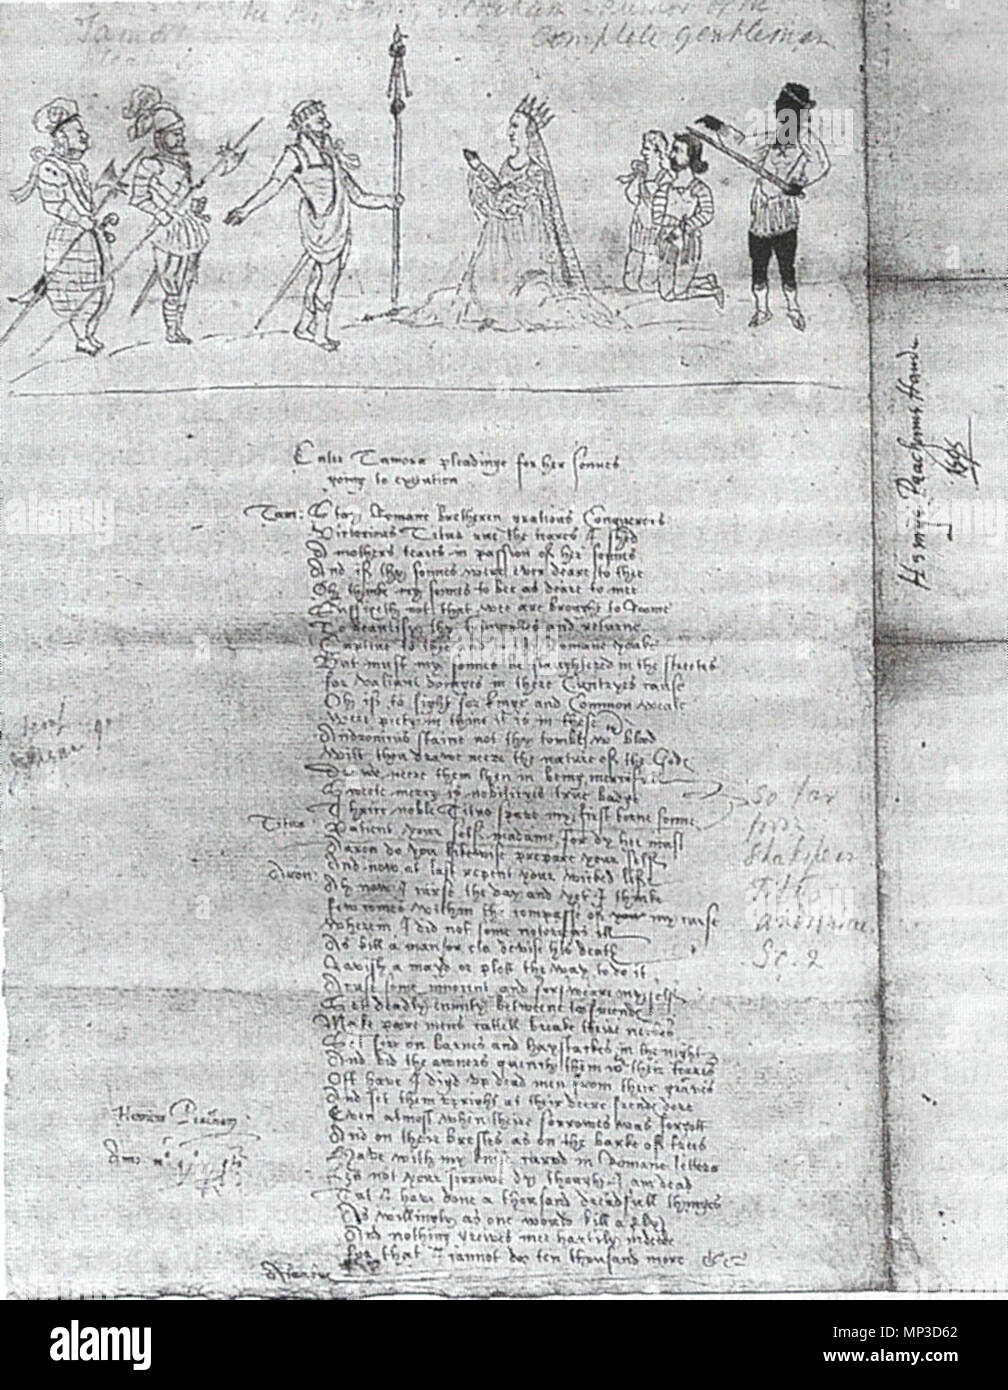 Tamor
Complete gentleman
Enter Tamora pleadinge for her sonnes
going to execution
Tam: Stay Romane bretheren gratious Conquerors
Victorious Titus rue the teares I shed
A mothers teares in passion of her sonnes
And if thy sonnes were ever deare to thee
Oh thinke my sonnes to bee as deare to mee
Suffizeth not that wee are brought to Roome
To beautify thy triumphes and returne
Captive to thee and to thy Romane yoake
But must my sonnes be slaughtered in the streetes
for valiant doinges in there Cuntryes cause
Oh if to fight for kinge and Common weale
Were piety in thine it is in these
Andronicus staine not thy tombe wth blood
Wilt thou drawe neere the nature of the Gods
Drawe neere them then in being mercifull
Sweete mercy is nobilityes true badge
Thrice noble Titus spare my first borne sonne
Titus: Patient your self madame for dy hee must
Aaron do you likewise prepare your self
And now at last repent your wicked life
Aron: Ah now I curse the day and yet I thinke
few comes within the compasse of my curse
Wherein I did not some notorious ill
As kill a man or els devise his death
Ravish a mayd or plott the way to do it
Acuse some innocent and forsweare myself
Set deadly enmity betweene too freendes
Make poore mens cattell breake theire neckes
Set fire on barnes and haystackes in the night
And bid the owners quench them wth their teares
Oft have I digd up dead men from their graves
And set them upright at their deere frends dore
Even almost when theire sorrowes was forgott
And on their brestes as on the barke of trees
Have with my knife carvd in Romane letters
Lett not your sorrowe dy though I am dead
Tut I have done a thousand dreadfull thinges
As willingly as one would kill a fly
And nothing greives mee hartily indeede
for that I cannot doo ten thousand more &c
So far
from
Shakspear
Titus
Andronicus
Sc. 2
Henricus Peacham
Anno
Henrye Peachams Hande
1595
alamy
Image ID: MP3D62
www.alamy.com